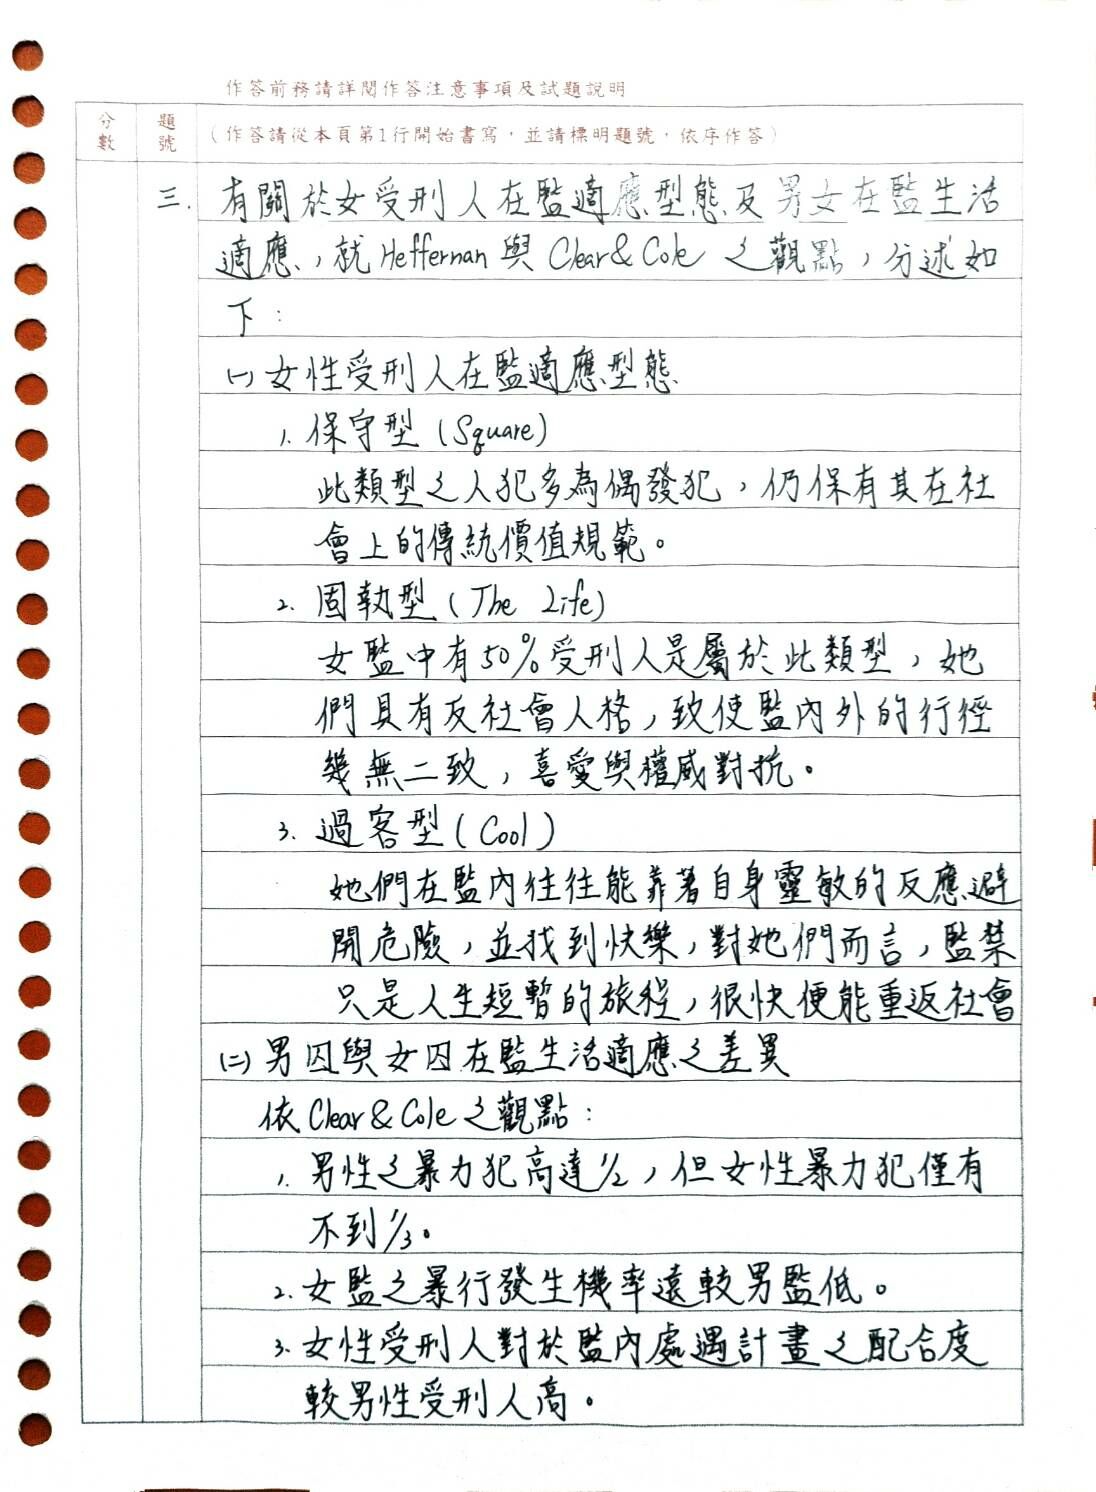 作答前務請詳閱作答注意事項及試題說明
分數
題號
(作答請從本頁第1行開始書寫,並請標明題號,依序作答)
三. 有關於女受刑人在監適應型態及男女在監生活
適應,就Heffernan與Clear&Cole之觀點,分述如
下:
(一)女性受刑人在監適應型態
1. 保守型(Square)
此類型之人犯多為偶發犯,仍保有其在社
會上的傳統價值規範。
2. 固執型(The Life)
女監中有50%受刑人是屬於此類型,她
們具有反社會人格,致使監內外的行徑
幾無二致,喜愛與權威對抗。
3. 過客型(Cool)
她們在監內往往能靠著自身靈敏的反應避
開危險,並找到快樂,對她們而言,監禁
只是人生短暫的旅程,很快便能重返社會
(二)男囚與女囚在監生活適應之差異
依Clear&Cole之觀點:
1. 男性之暴力犯高達1/2,但女性暴力犯僅有
不到1/3。
2. 女監之暴行發生機率遠較男監低。
3. 女性受刑人對於監內處遇計畫之配合度
較男性受刑人高。